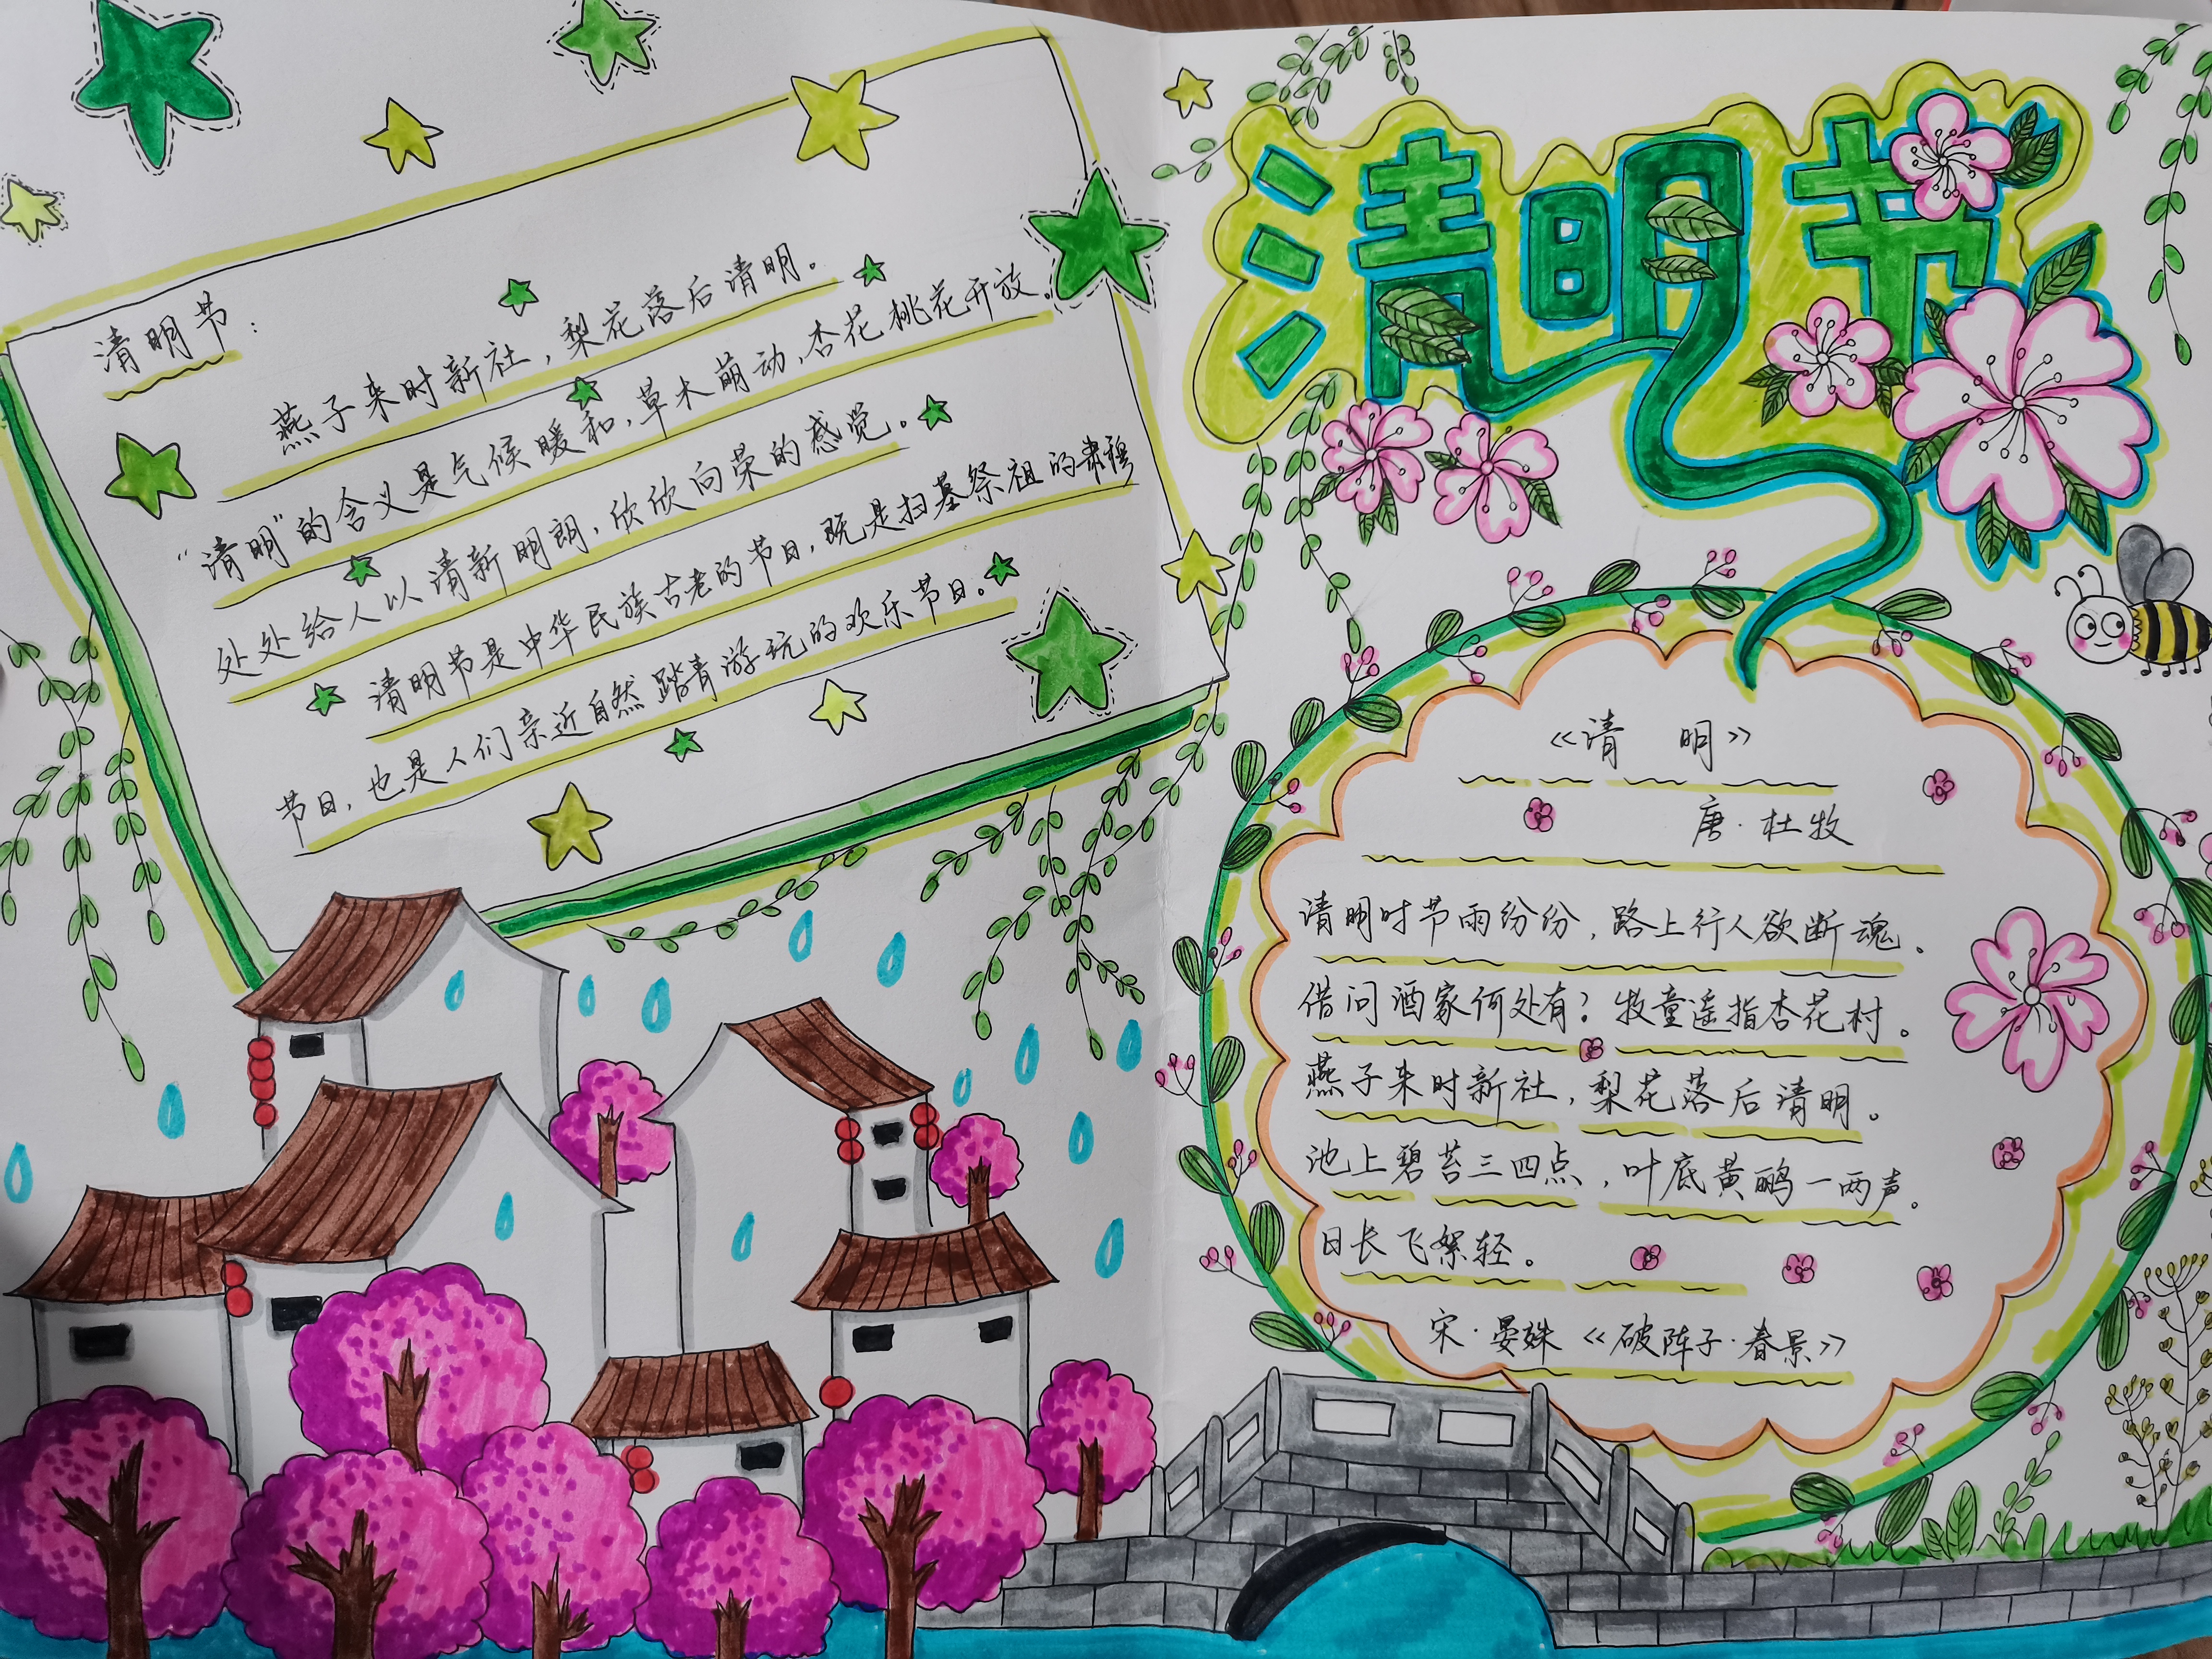 清明节:
燕子来时新社,梨花落后清明。
“清明”的含义是气候暖和,草木萌动,杏花桃花开放。
处处给人以清新明朗,欣欣向荣的感觉。
清明节是中华民族古老的节日,既是扫墓祭祖的肃穆
节日,也是人们亲近自然踏青游玩的欢乐节日。
清明节
《清 明》
唐·杜牧
清明时节雨纷纷,路上行人欲断魂。
借问酒家何处有?牧童遥指杏花村。
燕子来时新社,梨花落后清明。
池上碧苔三四点,叶底黄鹂一两声。
日长飞絮轻。
宋·晏殊《破阵子·春景》